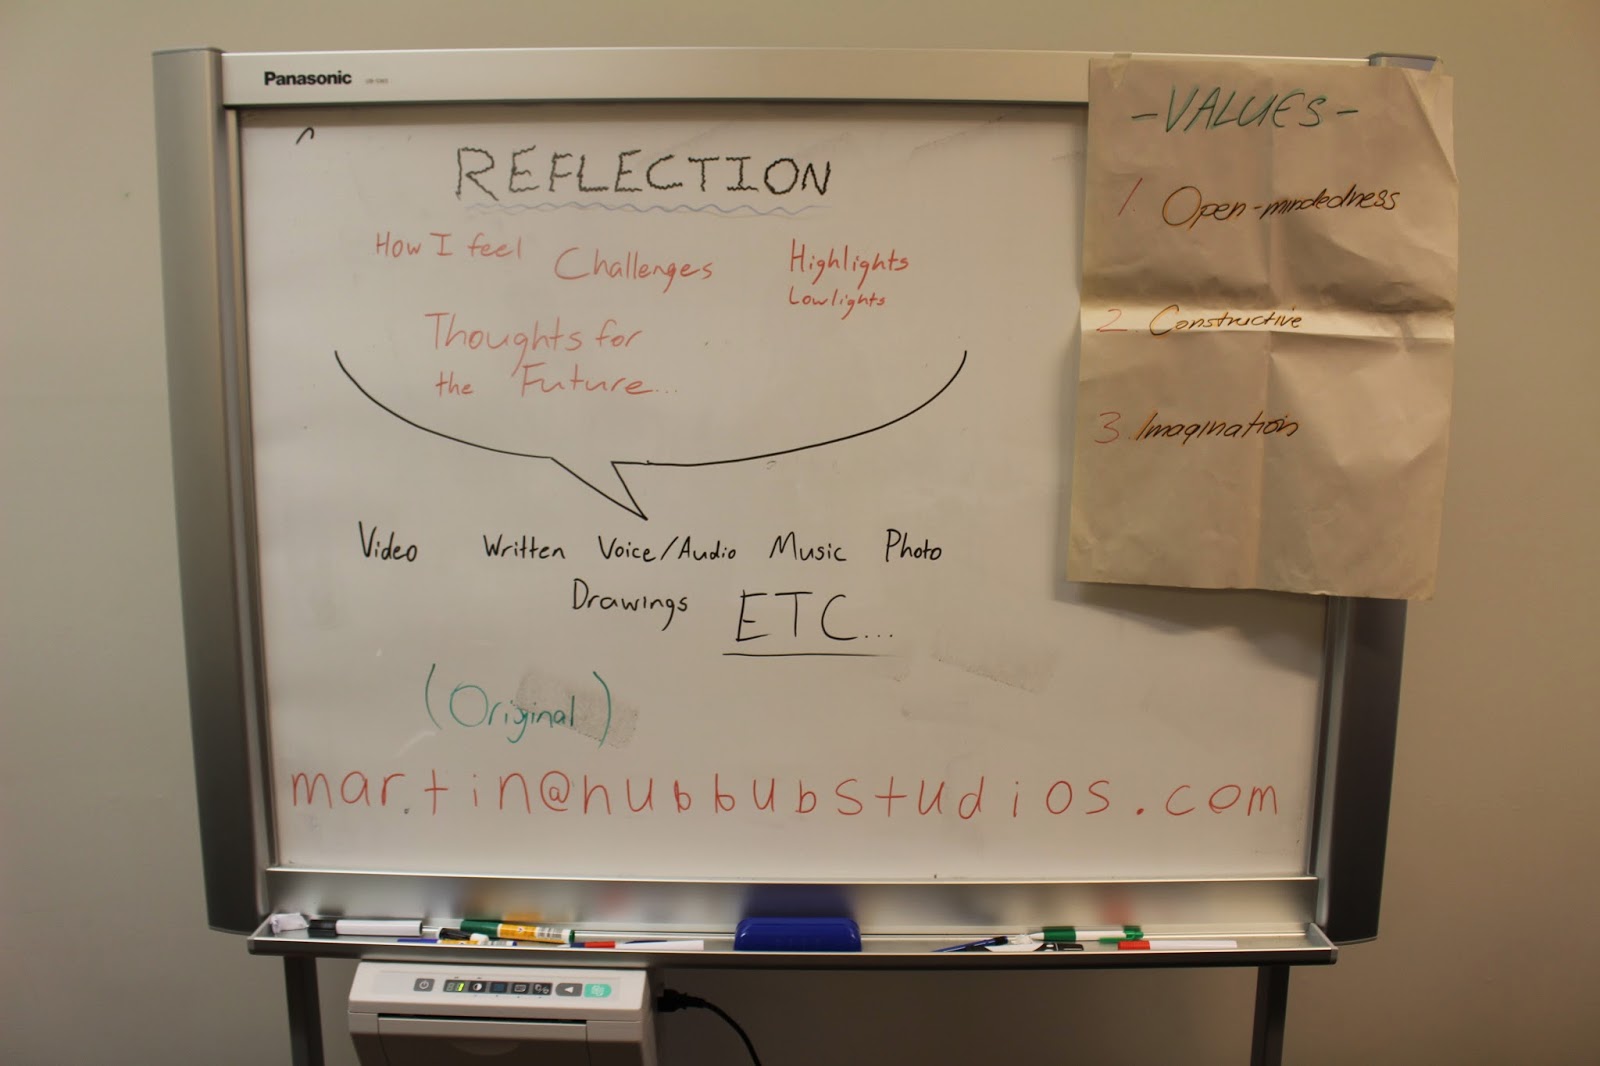 Panasonic
REFLECTION
How I feel Challenges Highlights
Lowlights
Thoughts for
the Future...
Video Written Voice/Audio Music Photo
Drawings ETC...
(Original)
martin@hubbubstudios.com
-VALUES-
1. Open-mindedness
2. Constructive
3. Imagination